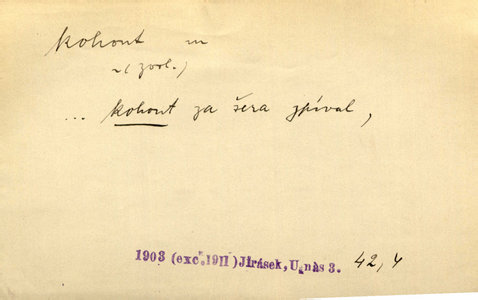 kohout m
~ (zool.)
... kohout za šera zpíval,
1903 (exc. 1911) Jirásek, U nás 3. 42, 4